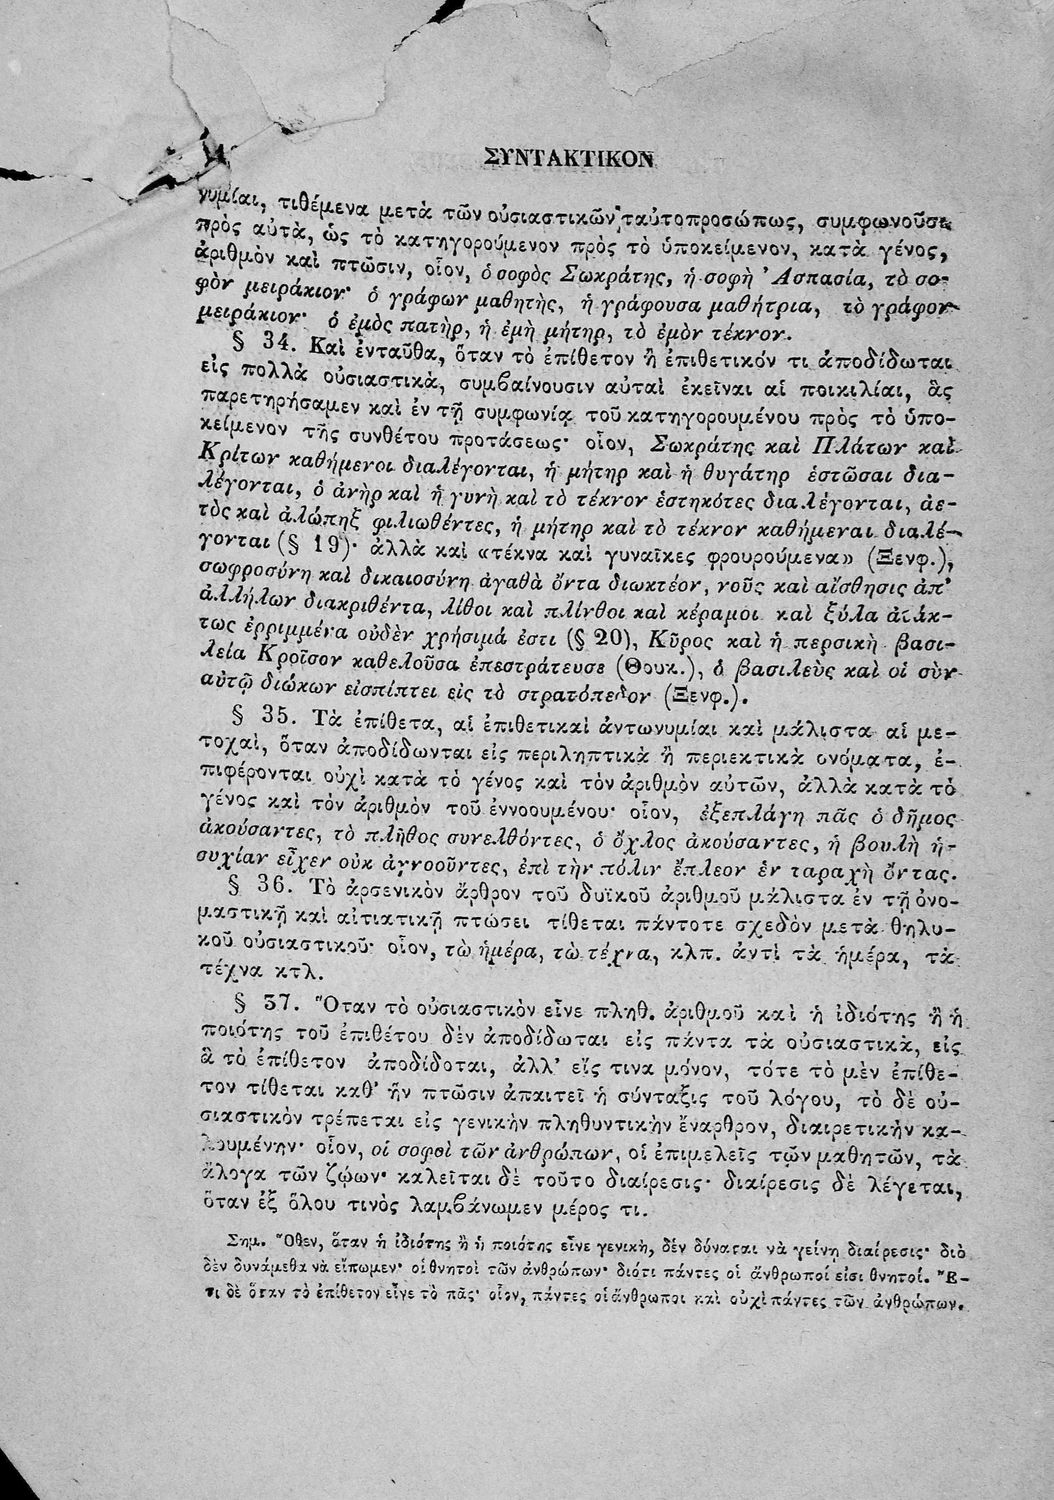 ΣΥΝΤΑΚΤΙΚΟΝ
νυμίαι, τιθέμενα μετὰ τῶν οὐσιαστικῶν ταὐτοπροσώπως, συμφωνοῦσι
πρὸς αὐτὰ, ὡς τὸ κατηγορούμενον πρὸς τὸ ὑποκείμενον, κατὰ γένος,
ἀριθμὸν καὶ πτῶσιν, οἷον, ὁ σοφὸς Σωκράτης, ἡ σοφὴ Ἀσπασία, τὸ σο-
φὸν μειράκιον· ὁ γράφων μαθητὴς, ἡ γράφουσα μαθήτρια, τὸ γράφον
μειράκιον· ὁ ἐμὸς πατὴρ, ἡ ἐμὴ μήτηρ, τὸ ἐμὸν τέκνον.
§ 34. Καὶ ἐνταῦθα, ὅταν τὸ ἐπίθετον ἢ ἐπιθετικόν τι ἀποδίδωται
εἰς πολλὰ οὐσιαστικὰ, συμβαίνουσιν αὐταὶ ἐκεῖναι αἱ ποικιλίαι, ἃς
παρετηρήσαμεν καὶ ἐν τῇ συμφωνίᾳ τοῦ κατηγορουμένου πρὸς τὸ ὑπο-
κείμενον τῆς συνθέτου προτάσεως· οἷον, Σωκράτης καὶ Πλάτων καὶ
Κρίτων καθήμενοι διαλέγονται, ἡ μήτηρ καὶ ἡ θυγάτηρ ἑστῶσαι δια-
λέγονται, ὁ ἀνὴρ καὶ ἡ γυνὴ καὶ τὸ τέκνον ἑστηκότες διαλέγονται, ἀε-
τὸς καὶ ἀλώπηξ φιλιωθέντες, ἡ μήτηρ καὶ τὸ τέκνον καθήμεναι διαλέ-
γονται (§ 19)· ἀλλὰ καὶ «τέκνα καὶ γυναῖκες φρουρούμενα» (Ξενφ.),
σωφροσύνη καὶ δικαιοσύνη ἀγαθὰ ὄντα διωκτέον, νοῦς καὶ αἴσθησις ἀπ’
ἀλλήλων διακριθέντα, λίθοι καὶ πλίνθοι καὶ κέραμοι καὶ ξύλα ἀτάκ-
τως ἐρριμμένα οὐδὲν χρήσιμά ἐστι (§ 20), Κῦρος καὶ ἡ περσικὴ βασι-
λεία Κροῖσον καθελοῦσα ἐπεστράτευσε (Θουκ.), ὁ βασιλεὺς καὶ οἱ σὺν
αὐτῷ διώκων εἰσπίπτει εἰς τὸ στρατόπεδον (Ξενφ.).
§ 35. Τὰ ἐπίθετα, αἱ ἐπιθετικαὶ ἀντωνυμίαι καὶ μάλιστα αἱ με-
τοχαὶ, ὅταν ἀποδίδωνται εἰς περιληπτικὰ ἢ περιεκτικὰ ονόματα, ἐ-
πιφέρονται οὐχὶ κατὰ τὸ γένος καὶ τὸν ἀριθμὸν αὐτῶν, ἀλλὰ κατὰ τὸ
γένος καὶ τὸν ἀριθμὸν τοῦ ἐννοουμένου· οἷον, ἐξεπλάγη πᾶς ὁ δῆμος
ἀκούσαντες, τὸ πλῆθος συνελθόντες, ὁ ὄχλος ἀκούσαντες, ἡ βουλὴ ἡ-
συχίαν εἶχεν οὐκ ἀγνοοῦντες, ἐπὶ τὴν πόλιν ἔπλεον ἐν ταραχῇ ὄντας.
§ 36. Τὸ ἀρσενικὸν ἄρθρον τοῦ δυϊκοῦ ἀριθμοῦ μάλιστα ἐν τῇ ὀνο-
μαστικῇ καὶ αἰτιατικῇ πτώσει τίθεται πάντοτε σχεδὸν μετὰ θηλυ-
κοῦ οὐσιαστικοῦ· οἷον, τὼ ἡμέρα, τὼ τέχνα, κλπ. ἀντὶ τὰ ἡμέρα, τὰ
τέχνα κτλ.
§ 37. Ὅταν τὸ οὐσιαστικὸν εἶνε πληθ. ἀριθμοῦ καὶ ἡ ἰδιότης ἢ ἡ
ποιότης τοῦ ἐπιθέτου δὲν ἀποδίδωται εἰς πάντα τὰ οὐσιαστικὰ, εἰς
ἃ τὸ ἐπίθετον ἀποδίδοται, ἀλλ’ εἴς τινα μόνον, τότε τὸ μὲν ἐπίθε-
τον τίθεται καθ’ ἣν πτῶσιν ἀπαιτεῖ ἡ σύνταξις τοῦ λόγου, τὸ δὲ οὐ-
σιαστικὸν τρέπεται εἰς γενικὴν πληθυντικὴν ἔναρθρον, διαιρετικὴν κα-
λουμένην· οἷον, οἱ σοφοὶ τῶν ἀνθρώπων, οἱ ἐπιμελεῖς τῶν μαθητῶν, τὰ
ἄλογα τῶν ζῴων· καλεῖται δὲ τοῦτο διαίρεσις· διαίρεσις δὲ λέγεται,
ὅταν ἐξ ὅλου τινὸς λαμβάνωμεν μέρος τι.
Σημ. Ὅθεν, ὅταν ἡ ἰδιότης ἢ ἡ ποιότης εἶνε γενικὴ, δὲν δύναται νὰ γείνῃ διαίρεσις· διὸ
δὲν δυνάμεθα νὰ εἴπωμεν· οἱ θνητοὶ τῶν ἀνθρώπων· διότι πάντες οἱ ἄνθρωποί εἰσι θνητοί. Ἔ-
τι δὲ ὅταν τὸ ἐπίθετον εἶνε τὸ πᾶς· οἷον, πάντες οἱ ἄνθρωποι καὶ οὐχὶ πάντες τῶν ἀνθρώπων.